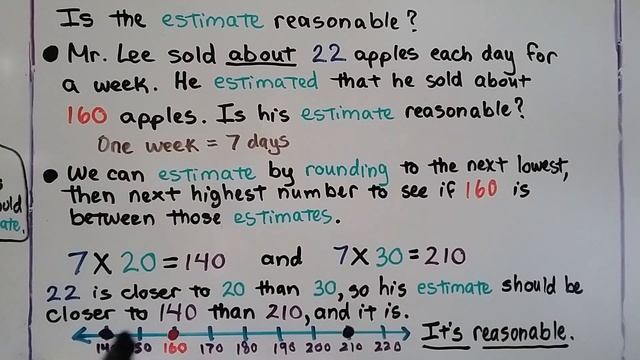 Is the estimate reasonable?
• Mr. Lee sold about 22 apples each day for
a week. He estimated that he sold about
160 apples. Is his estimate reasonable?
One week = 7 days
• We can estimate by rounding to the next lowest,
then next highest number to see if 160 is
between those estimates.
7 X 20 = 140 and 7 X 30 = 210
22 is closer to 20 than 30, so his estimate should be
closer to 140 than 210, and it is.
160 170 180 190 200 210 220 It's reasonable.